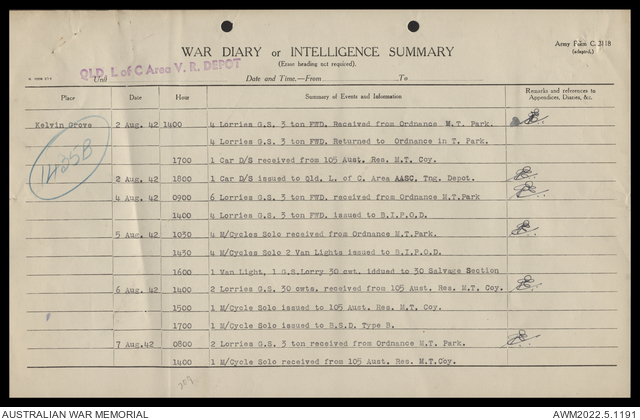 Army Form C. 3118
(adapted.)
WAR DIARY or INTELLIGENCE SUMMARY
(Erase heading not required).
QLD. L of C Area V. R. DEPOT
Unit
Date and Time.—From To
Place Date Hour Summary of Events and Information Remarks and references to Appendices, Diaries, &c.
Kelvin Grove 2 Aug. 42 1400 4 Lorries G.S. 3 ton FWD. Received from Ordnance M.T. Park.
4 Lorries G.S. 3 ton FWD. Returned to Ordnance in T. Park.
1700 1 Car D/S received from 105 Aust. Res. M.T. Coy.
1425B
2 Aug. 42 1800 1 Car D/S issued to Qld. L. of C. Area AASC. Tng. Depot.
4 Aug. 42 0900 6 Lorries G.S. 3 ton FWD. received from Ordnance M.T.Park
1400 4 Lorries G.S. 3 ton FWD. issued to B.I.P.O.D.
5 Aug. 42 1030 4 M/Cycles Solo received from Ordnance M.T.Park.
1430 4 M/Cycles Solo 2 Van Lights issued to B.I.P.O.D.
1600 1 Van Light, 1 G.S.Lorry 30 cwt. iddued to 30 Salvage Section
6 Aug. 42 1400 2 Lorries G.S. 30 cwts. received from 105 Aust. Res. M.T. Coy.
1500 1 M/Cycle Solo issued to 105 Aust. Res. M.T. Coy.
1700 1 M/Cycle Solo issued to B.S.D. Type B.
7 Aug.42 0800 2 Lorries G.S. 3 ton received from Ordnance M.T. Park.
1400 1 M/Cycle Solo received from 105 Aust. Res. M.T.Coy.
AUSTRALIAN WAR MEMORIAL AWM2022.5.1191